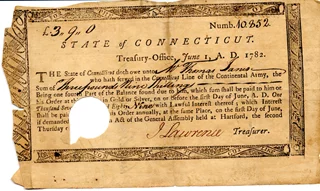 £3.9.0 Numb. 10852
STATE of CONNECTICUT.
Treasury-Office, June 1, A. D. 1782.
THE State of Connecticut doth owe unto Mr Thomas
who hath served in the Connecticut Line of the Continental Army, the
Sum of Three pounds Nine Shillings
Being one fourth Part of the Balance found due to him, which Sum shall be paid to him or
his Order at in Gold or Silver, on or before the first Day of June, A. D. One
Thousand Seven Eighty Nine with Lawful Interest thereof; which Interest
shall be paid his Order annually, at the same Place, on the first Day of June,
if demanded an Act of the General Assembly held at Hartford, the second
Thursday
J. Lawrence Treasurer.